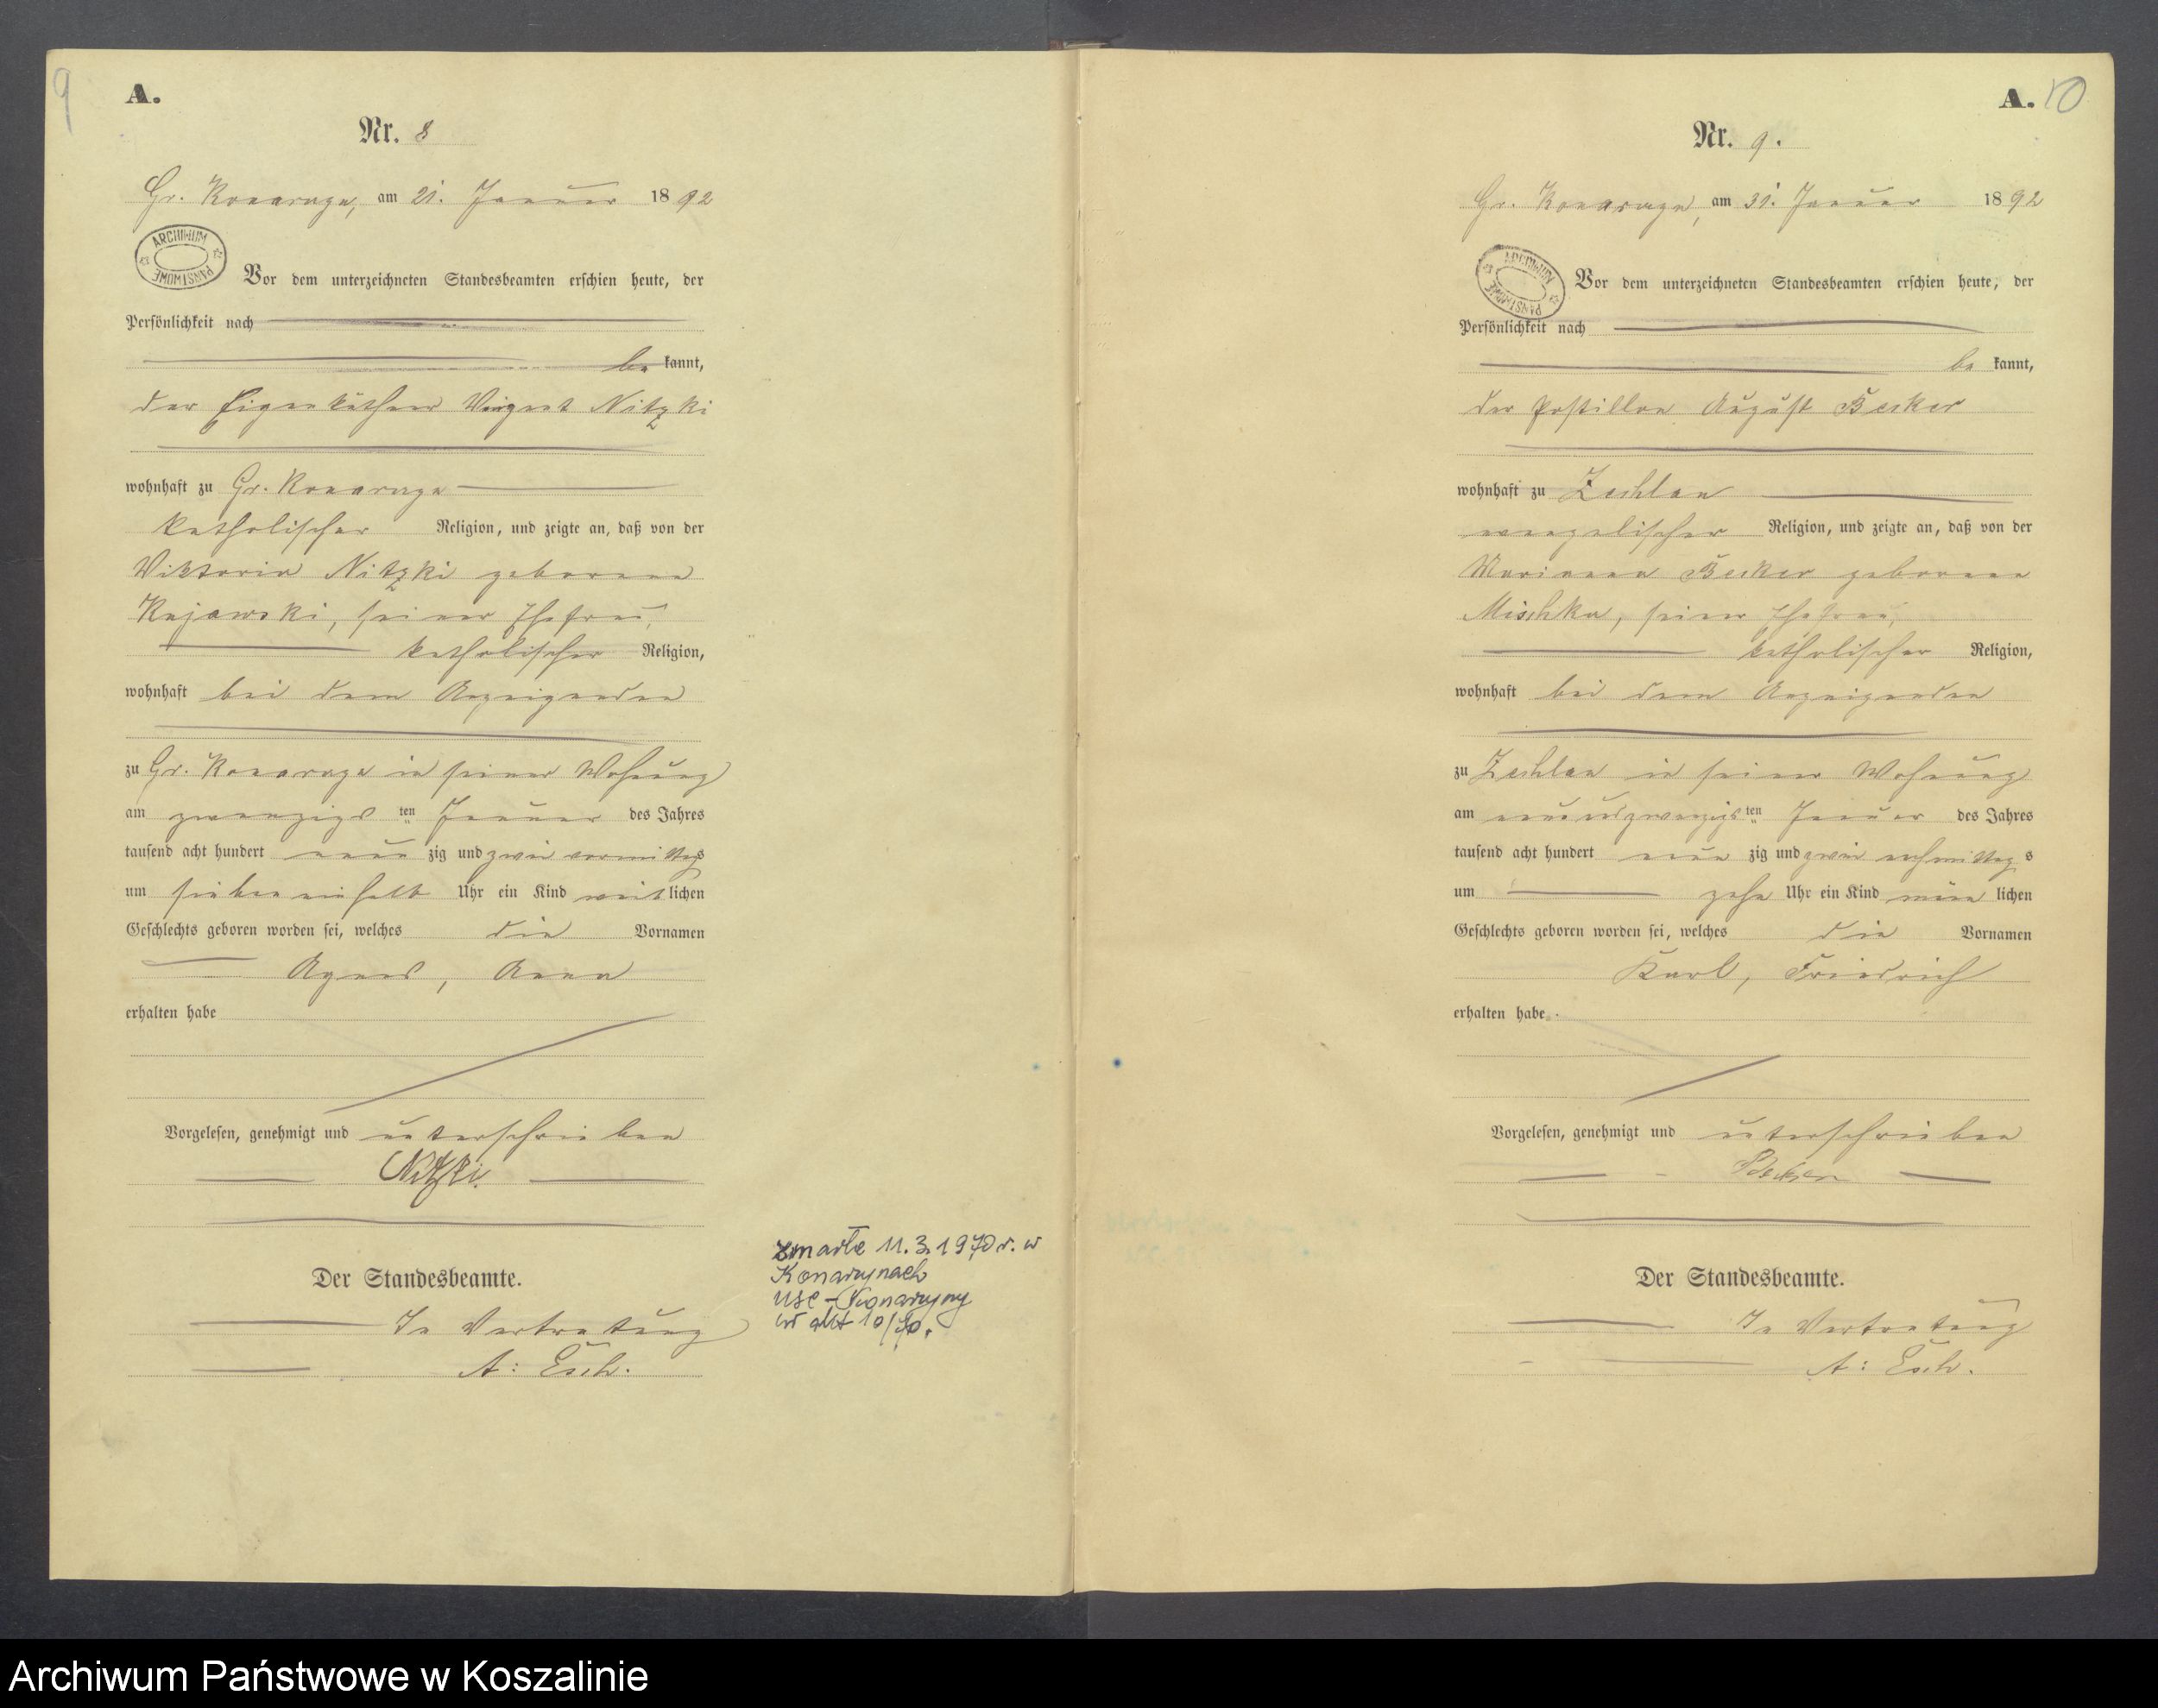 9
A.
Nr. 8
Gr. Konarczyn, am 21. Januar 1892
ARCHIWUM PAŃSTWOWE
Vor dem unterzeichneten Standesbeamten erschien heute, der
Persönlichkeit nach
be kannt,
der Eigenkäthner Vinzent Nitzki
wohnhaft zu Gr. Konarczyn
katholischer Religion, und zeigte an, daß von der
Viktoria Nitzki geborene
Kujawski, seiner Ehefrau,
katholischer Religion,
wohnhaft bei dem Anzeigenden
zu Gr. Konarczyn in seiner Wohnung
am zwanzigsten Januar des Jahres
tausend acht hundert neun zig und zwei vormittags
um sieben einhalb Uhr ein Kind weiblichen
Geschlechts geboren worden sei, welches die Vornamen
Agnes, Anna
erhalten habe
Vorgelesen, genehmigt und unterschrieben
Nitzki.
Der Standesbeamte.
In Vertretung
A: Esch.
zmarła 11.3.1970 r. w
Konarzynach
USC - Konarzyny
nr akt 10/70.
A. 10
Nr. 9.
Gr. Konarczyn, am 31. Januar 1892
ARCHIWUM PAŃSTWOWE
Vor dem unterzeichneten Standesbeamten erschien heute, der
Persönlichkeit nach
be kannt,
der Postillon August Becker
wohnhaft zu Zechlau
evangelischer Religion, und zeigte an, daß von der
Marianna Becker geborene
Mischka, seiner Ehefrau,
katholischer Religion,
wohnhaft bei dem Anzeigenden
zu Zechlau in seiner Wohnung
am neunundzwanzigsten Januar des Jahres
tausend acht hundert neun zig und zwei nachmittags
um zehn Uhr ein Kind männlichen
Geschlechts geboren worden sei, welches die Vornamen
Karl, Friedrich
erhalten habe.
Vorgelesen, genehmigt und unterschrieben
Becker
Der Standesbeamte.
In Vertretung
A: Esch.
Archiwum Państwowe w Koszalinie